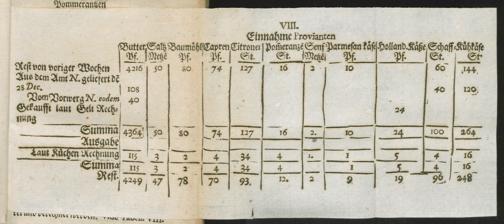 Pommerantzen
VIII.
Einnahme Provianten
Butter Saltz Baumöhl Capren Citronen Pomeranzē Senf Parmesan käse Holland. Käse Schaff- Kühkäse
Pf. Metzē Pf. Pf. St. St. Metzē Pf. Pf. St. St.
Rest von voriger Wochen 4216 50 80 74 127 16 2 10 60 144
Aus dem Amt N. geliefert de
28 Dec. 108 40 120
Vom Vorwerg N. eodem 40
Gekaufft laut Gelt Rech- 24
nung
Summa 4364 50 80 74 127 16 2. 10 24 100 264
Ausgabe
Laut Küchen Rechnung 115 3 2 4 34 4 1. 1 5 4 16
Summa 115 3 2 4 34 4 1 5 4 16
Rest. 4249 47 78 70 93. 12. 2 9 19 96 248